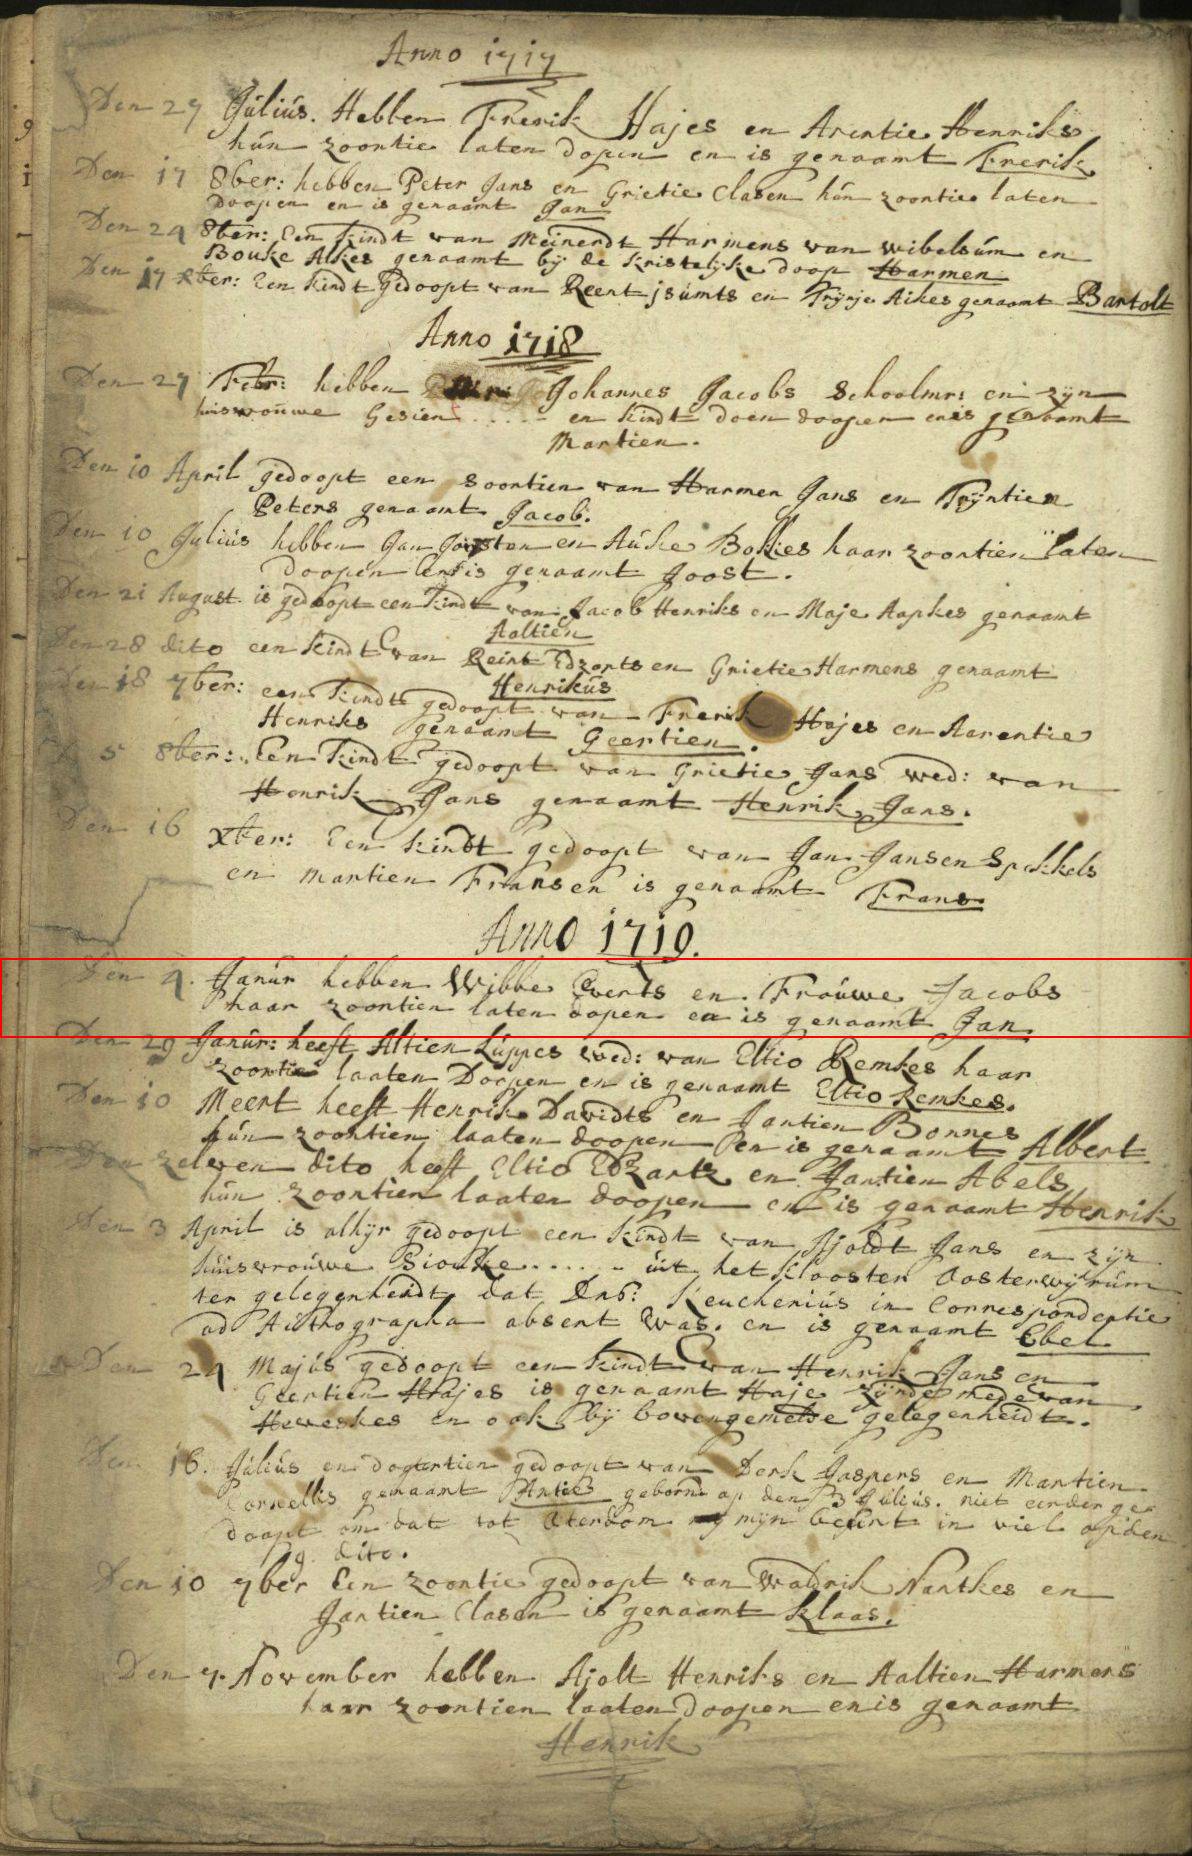 Anno 1717
Den 27 Július. Hebben Frerik Hajes en Arentie Henriks
hún zoontie laten dopen en is genaamt Frerik
Den 17 8ber: hebben Peter Jans en Grietie Clasen hún zoontie laten
doopen en is genaamt Jan
Den 24 8ber: Een kindt van Meinerdt Harmens van wibelsúm en
Bouke Alkes genaamt bij de kristelijke doop Harmen
Den 17 xber: Een kindt Gedoopt van Reent jsúmts en Trijnje Aikes genaamt Bartolt
Anno 1718
Den 27 Febr: hebben Johannes Jacobs Schoolmr: en zijn
huiswoúwe Gesien ..... en kindt doen doopen en is genaamt
Martien.
Den 10 April gedoopt een soontien van Harmen Jans en Trijntien
Peters genaamt Jacob.
Den 10 Július hebben Jan Joosten en Aúke Bokies haar zoontien laten
doopen en is genaamt Joost.
Den 21 August is gedoopt een kindt van Jacob Henriks en Maje Aapkes genaamt
Aaltien
Den 28 dito een kindt van Reint Edzarts en Grietie Harmens genaamt
Henrikús
Den 18 7ber: een kindt gedoopt van Frerik Hajes en Aarentie
Henriks genaamt Geertien.
D 5 8ber: Een kindt gedoopt van Grietie Jans wed: van
Henrik Jans genaamt Henrik Jans.
Den 16 Xber: Een kindt gedoopt van Jan Jansen Spekkels
en Martien Fransen is genaamt Frans.
Anno 1719.
Den 4. Janúr hebben Wibbe Everts en Froúwe Jacobs
haar zoontien laten dopen en is genaamt Jan
Den 29 Janúr: heeft Altien Lúppes wed: van Eltio Remkes haar
zoontie laaten Doopen en is genaamt Eltio Remkes.
Den 10 Meert heeft Henrik Davidts en Jantien Bonnes
hún zoontien laaten doopen en is genaamt Albert
Den zelven dito heeft Eltio Edzarts en Jantien Abels
hún zoontien laaten doopen en is genaamt Henrik
Den 3 April is alhijr gedoopt een kindt van Ajoldt Jans en zijn
húisvroúwe Sioúke ...... úit het klooster Oosterwijtúm
ter gelegenheidt dat Dns: Keucheniús in Correspondentie
ad Aúthographa absent was. en is genaamt Ebel
Den 24 Majús gedoopt een kindt van Henrik Jans en
Geertien Hajes is genaamt Haje zijnde mede van
Heweskes en ook bij bovengemelde gelegenheidt.
Den 16. Július en dogtertien gedoopt van Derk Jaspers en Martien
Cornellis genaamt Antie geborne op den 3 Július. niet eerder ge
doopt om dat tot Oterdom mijn beúrt in viel op den
9. dito.
Den 10 7ber Een zoontie gedoopt van Waldrik Nantkes en
Jantien Clasen is genaamt Klaas.
Den 7. November hebben Ajolt Henriks en Aaltien Harmens
haar zoontien laaten doopen en is genaamt
Henrik